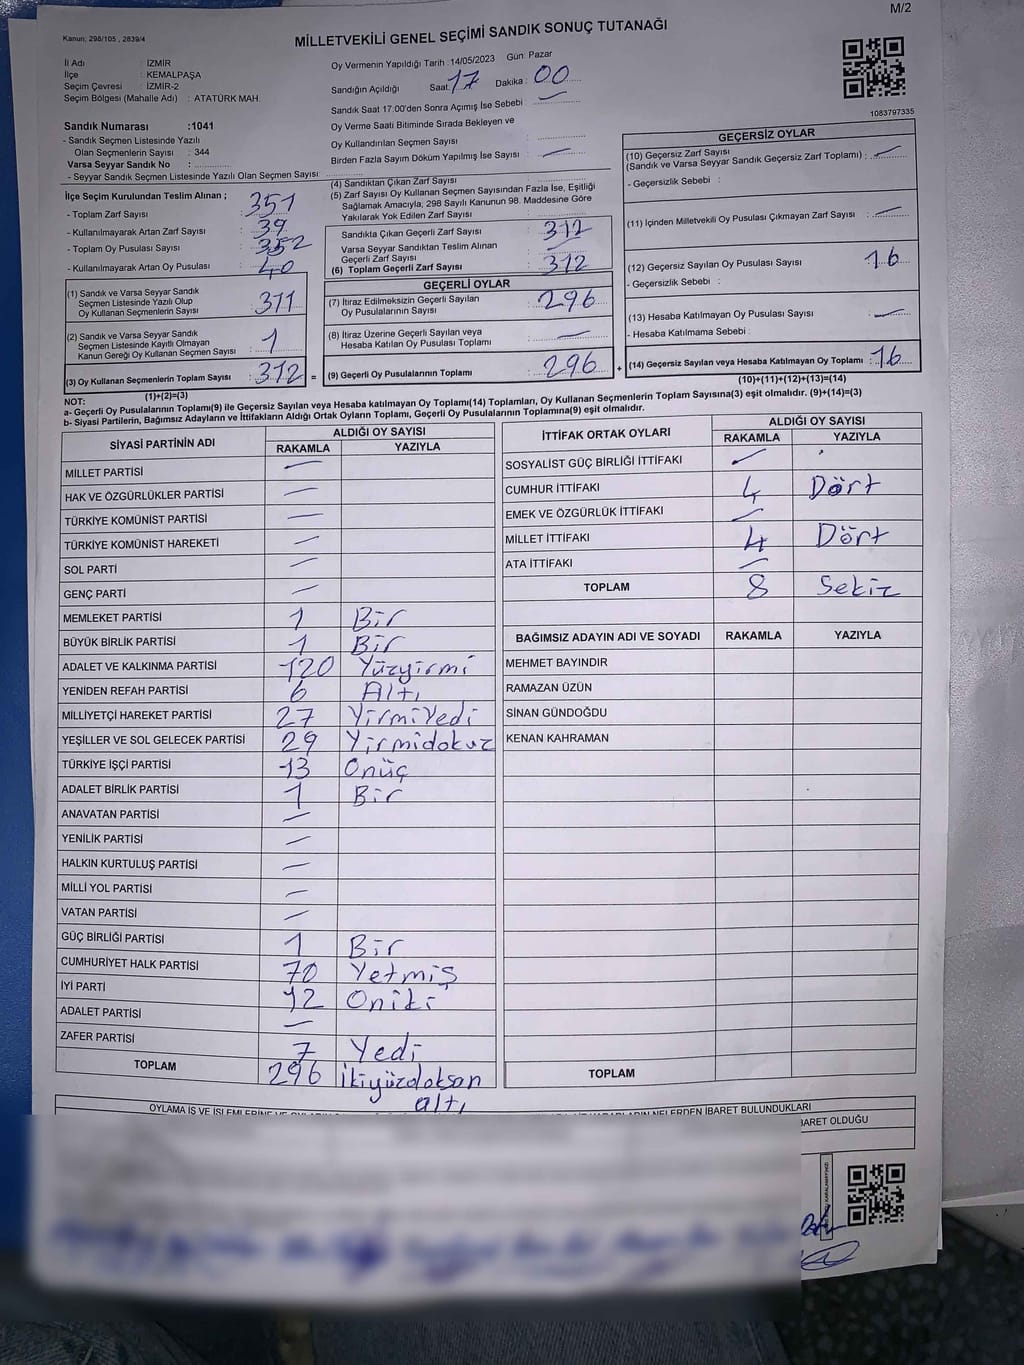 M/2
Kanun: 298/105 , 2839/4
MİLLETVEKİLİ GENEL SEÇİMİ SANDIK SONUÇ TUTANAĞI
İl Adı : İZMİR
İlçe : KEMALPAŞA
Seçim Çevresi : İZMİR-2
Seçim Bölgesi (Mahalle Adı) : ATATÜRK MAH.
Sandık Numarası :1041
- Sandık Seçmen Listesinde Yazılı
Olan Seçmenlerin Sayısı : 344
Varsa Seyyar Sandık No :
- Seyyar Sandık Seçmen Listesinde Yazılı Olan Seçmen Sayısı:
Oy Vermenin Yapıldığı Tarih :14/05/2023 Gün: Pazar
Sandığın Açıldığı Saat: 17 Dakika : 00
Sandık Saat 17:00'den Sonra Açımış İse Sebebi : —
Oy Verme Saati Bitiminde Sırada Bekleyen ve
Oy Kullandırılan Seçmen Sayısı :
Birden Fazla Sayım Döküm Yapılmış İse Sayısı : —
1083797335
İlçe Seçim Kurulundan Teslim Alınan ;
- Toplam Zarf Sayısı : 351
- Kullanılmayarak Artan Zarf Sayısı : 39
- Toplam Oy Pusulası Sayısı : 352
- Kullanılmayarak Artan Oy Pusulası : 40
(1) Sandık ve Varsa Seyyar Sandık
Seçmen Listesinde Yazılı Olup
Oy Kullanan Seçmenlerin Sayısı : 311
(2) Sandık ve Varsa Seyyar Sandık
Seçmen Listesinde Kayıtlı Olmayan
Kanun Gereği Oy Kullanan Seçmen Sayısı : 1
(3) Oy Kullanan Seçmenlerin Toplam Sayısı : 312 =
(1)+(2)=(3)
(4) Sandıktan Çıkan Zarf Sayısı :
(5) Zarf Sayısı Oy Kullanan Seçmen Sayısından Fazla İse, Eşitliği
Sağlamak Amacıyla, 298 Sayılı Kanunun 98. Maddesine Göre
Yakılarak Yok Edilen Zarf Sayısı :
Sandıkta Çıkan Geçerli Zarf Sayısı : 312
Varsa Seyyar Sandıktan Teslim Alınan
Geçerli Zarf Sayısı : —
(6) Toplam Geçerli Zarf Sayısı : 312
GEÇERLİ OYLAR
(7) İtiraz Edilmeksizin Geçerli Sayılan
Oy Pusulalarının Sayısı : 296
(8) İtiraz Üzerine Geçerli Sayılan veya
Hesaba Katılan Oy Pusulası Toplamı : —
(9) Geçerli Oy Pusulalarının Toplamı : 296 +
GEÇERSİZ OYLAR
(10) Geçersiz Zarf Sayısı
(Sandık ve Varsa Seyyar Sandık Geçersiz Zarf Toplamı) : —
- Geçersizlik Sebebi :
(11) İçinden Milletvekili Oy Pusulası Çıkmayan Zarf Sayısı : —
(12) Geçersiz Sayılan Oy Pusulası Sayısı : 16
- Geçersizlik Sebebi :
(13) Hesaba Katılmayan Oy Pusulası Sayısı : —
- Hesaba Katılmama Sebebi :
(14) Geçersiz Sayılan veya Hesaba Katılmayan Oy Toplamı : 16
(10)+(11)+(12)+(13)=(14)
NOT:
a- Geçerli Oy Pusulalarının Toplamı(9) ile Geçersiz Sayılan veya Hesaba katılmayan Oy Toplamı(14) Toplamları, Oy Kullanan Seçmenlerin Toplam Sayısına(3) eşit olmalıdır. (9)+(14)=(3)
b- Siyasi Partilerin, Bağımsız Adayların ve İttifakların Aldığı Ortak Oyların Toplamı, Geçerli Oy Pusulalarının Toplamına(9) eşit olmalıdır.
SİYASİ PARTİNİN ADI ALDIĞI OY SAYISI
RAKAMLA YAZIYLA
MİLLET PARTİSİ —
HAK VE ÖZGÜRLÜKLER PARTİSİ —
TÜRKİYE KOMÜNİST PARTİSİ —
TÜRKİYE KOMÜNİST HAREKETİ —
SOL PARTİ —
GENÇ PARTİ —
MEMLEKET PARTİSİ 1 Bir
BÜYÜK BİRLİK PARTİSİ 1 Bir
ADALET VE KALKINMA PARTİSİ 120 Yüzyirmi
YENİDEN REFAH PARTİSİ 6 Altı
MİLLİYETÇİ HAREKET PARTİSİ 27 YirmiYedi
YEŞİLLER VE SOL GELECEK PARTİSİ 29 Yirmidokuz
TÜRKİYE İŞÇİ PARTİSİ 13 Onüç
ADALET BİRLİK PARTİSİ 1 Bir
ANAVATAN PARTİSİ —
YENİLİK PARTİSİ —
HALKIN KURTULUŞ PARTİSİ —
MİLLİ YOL PARTİSİ —
VATAN PARTİSİ —
GÜÇ BİRLİĞİ PARTİSİ 1 Bir
CUMHURİYET HALK PARTİSİ 70 Yetmiş
İYİ PARTİ 12 Oniki
ADALET PARTİSİ —
ZAFER PARTİSİ 7 Yedi
TOPLAM 296 İkiyüzdoksan
altı
İTTİFAK ORTAK OYLARI ALDIĞI OY SAYISI
RAKAMLA YAZIYLA
SOSYALİST GÜÇ BİRLİĞİ İTTİFAKI —
CUMHUR İTTİFAKI 4 Dört
EMEK VE ÖZGÜRLÜK İTTİFAKI —
MİLLET İTTİFAKI 4 Dört
ATA İTTİFAKI —
TOPLAM 8 Sekiz
BAĞIMSIZ ADAYIN ADI VE SOYADI RAKAMLA YAZIYLA
MEHMET BAYINDIR
RAMAZAN ÜZÜN
SİNAN GÜNDOĞDU
KENAN KAHRAMAN
TOPLAM
OYLAMA İŞ VE İŞLEMLERİNE VE NELERDEN İBARET BULUNDUKLARI
İBARET OLDUĞU